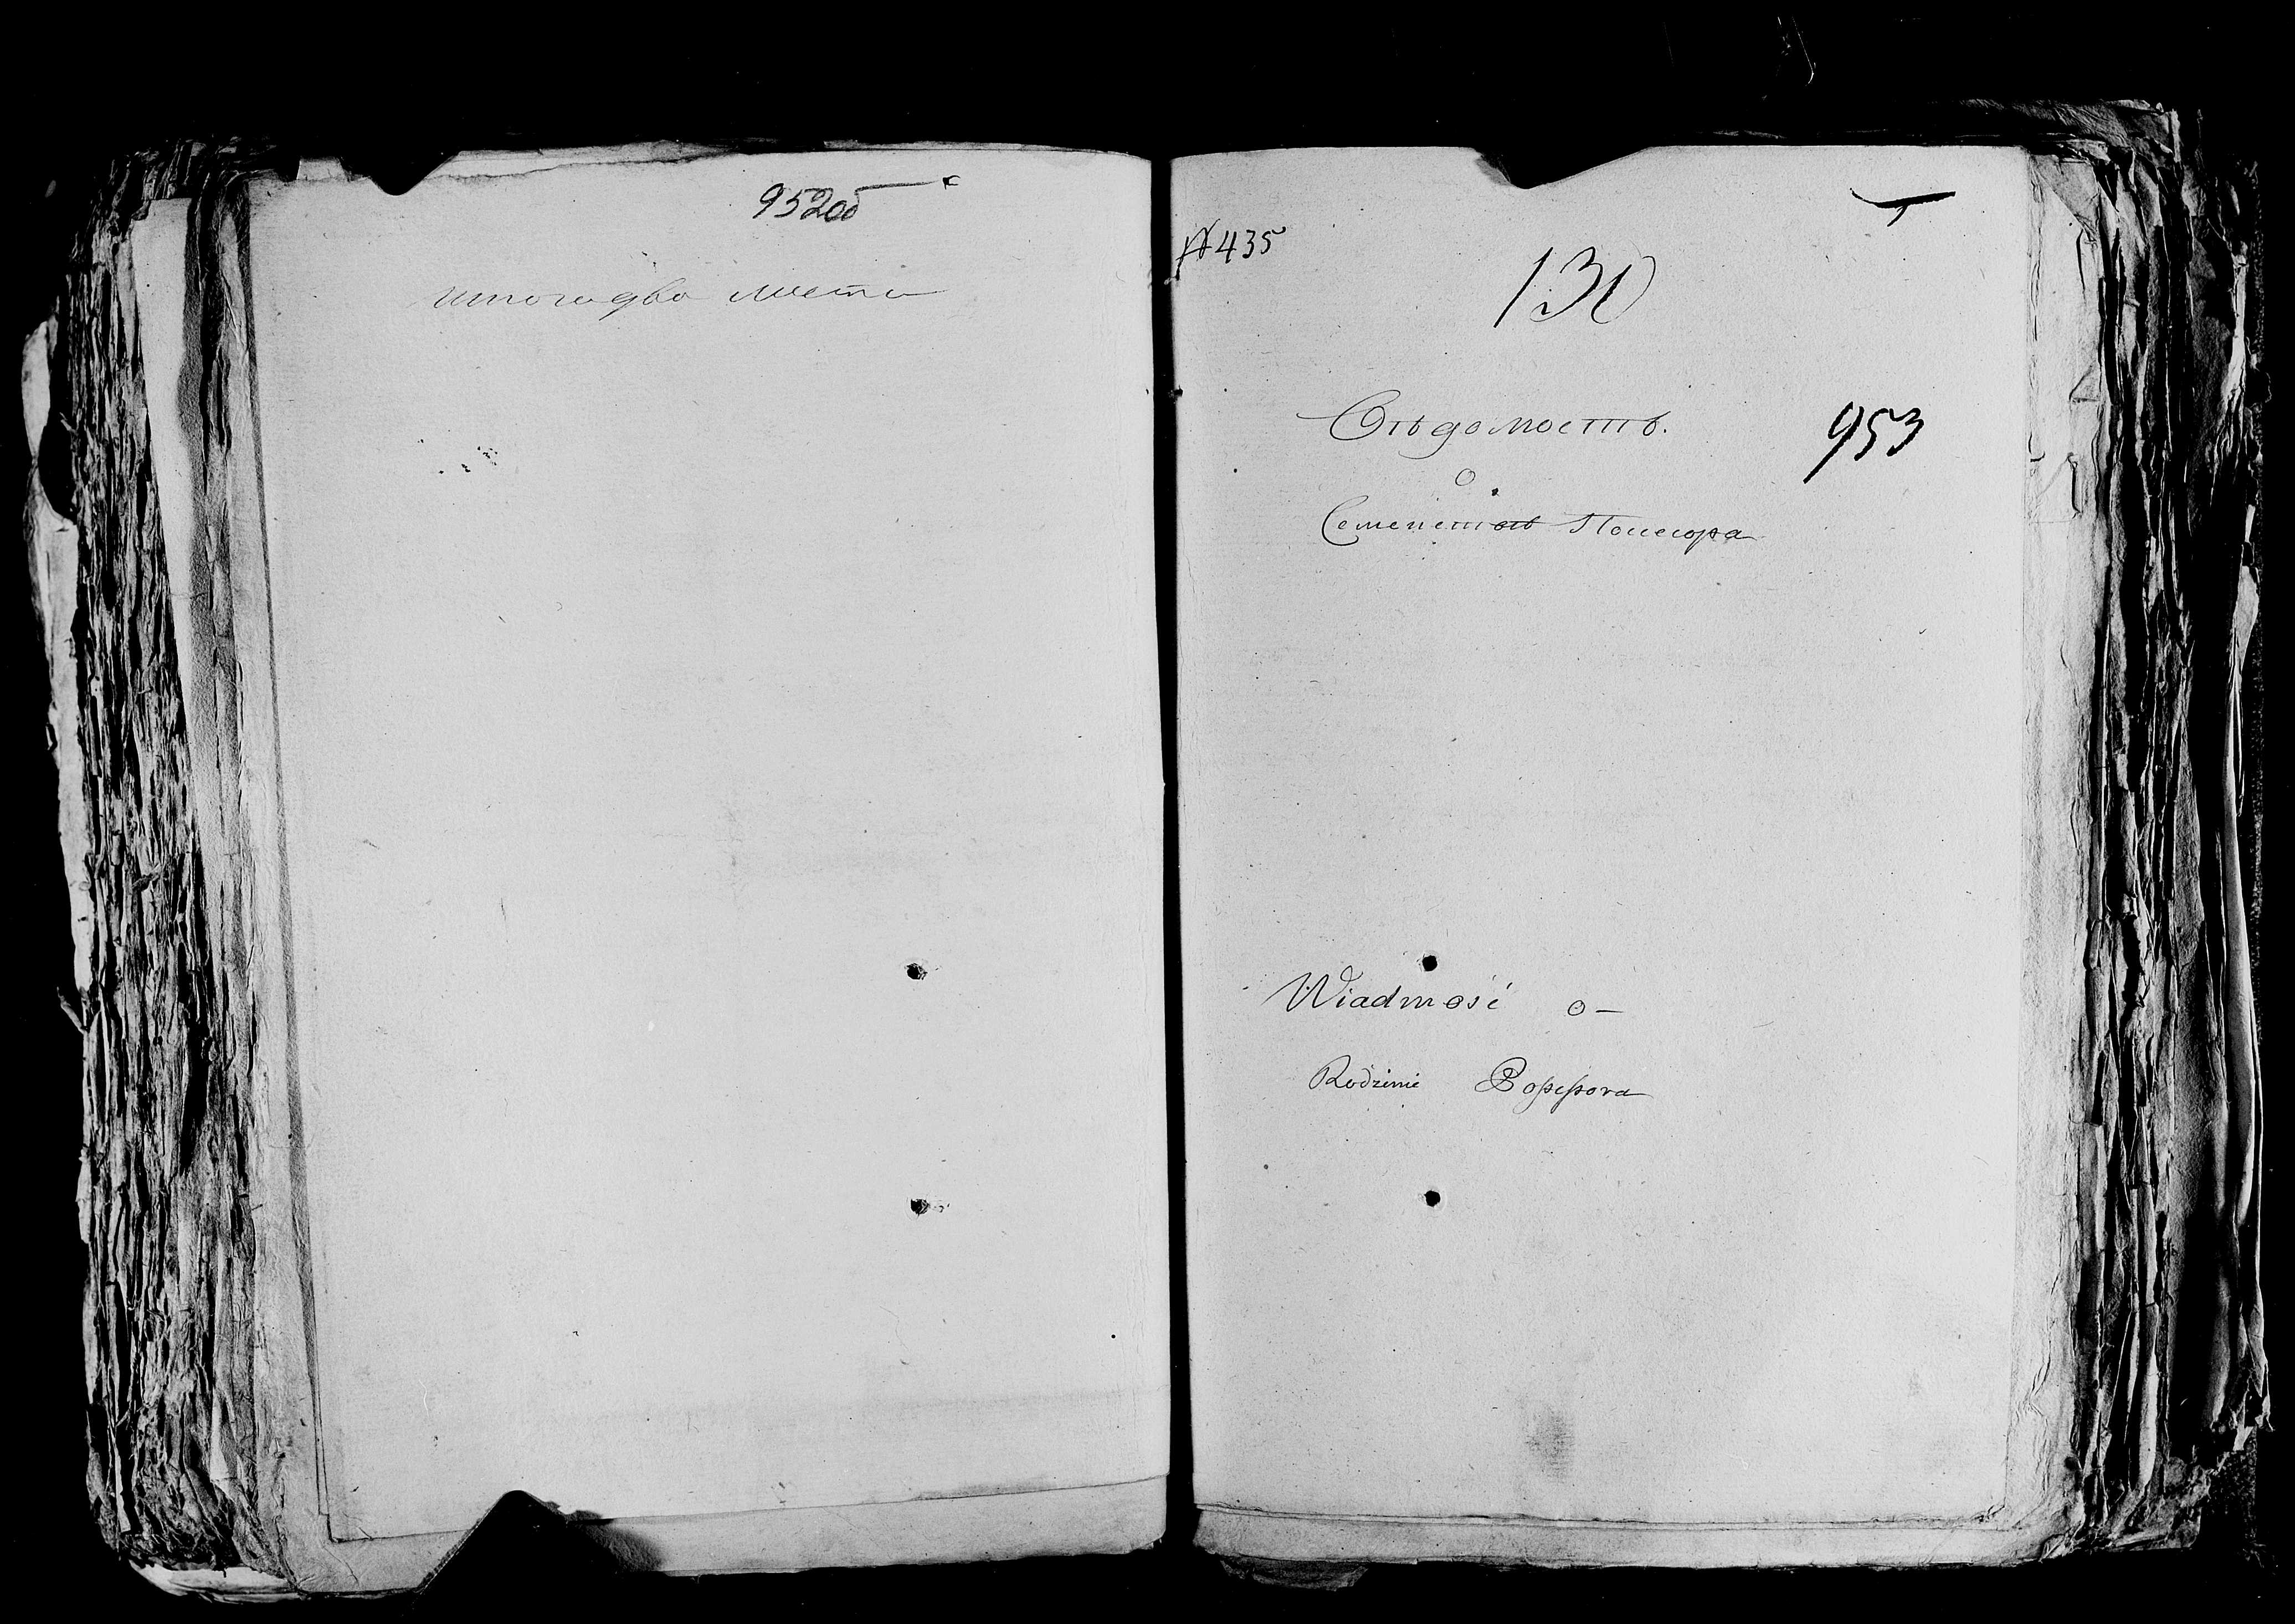 952об
итого два листа
№ 435
130
Сѣдомость.
953
о
Семействѣ Посесора
Wiadmość o—
Rodzinie Possessora